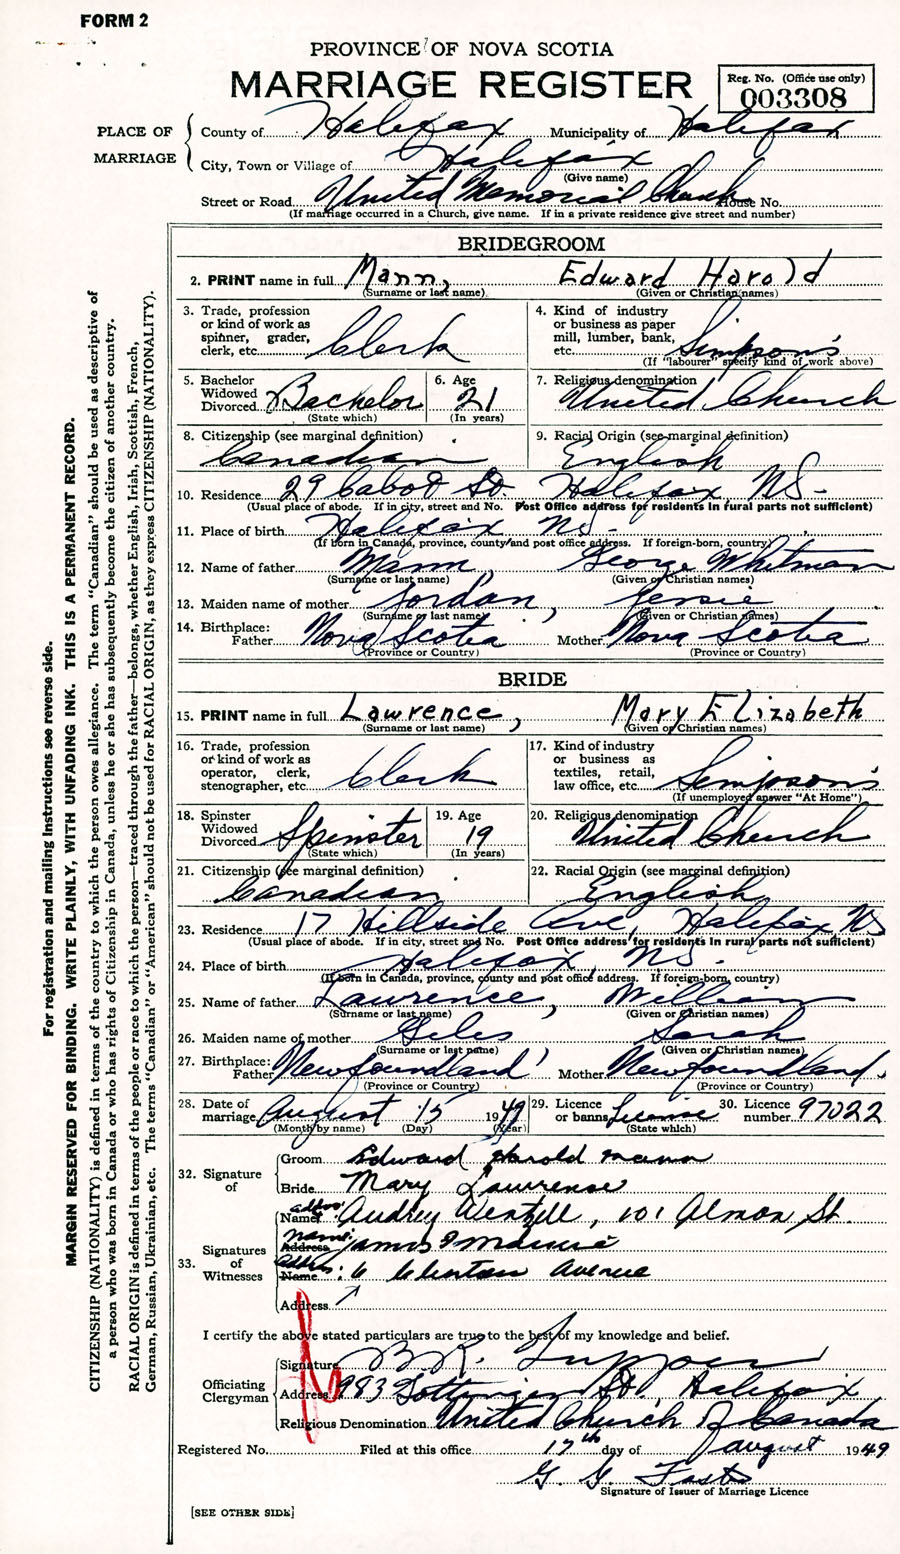 FORM 2
PROVINCE OF NOVA SCOTIA
MARRIAGE REGISTER
Reg. No. (Office use only)
003308
PLACE OF MARRIAGE
County of Halifax Municipality of Halifax
City, Town or Village of Halifax
(Give name)
Street or Road United Memorial Church House No.
(If marriage occurred in a Church, give name. If in a private residence give street and number)
BRIDEGROOM
2. PRINT name in full Mann, Edward Harold
(Surname or last name) (Given or Christian names)
3. Trade, profession or kind of work as spinner, grader, clerk, etc. Clerk
4. Kind of industry or business as paper mill, lumber, bank, etc. Simpson's
(If "labourer" specify kind of work above)
5. Bachelor Widowed Divorced Bachelor
(State which)
6. Age 21
(In years)
7. Religious denomination United Church
8. Citizenship (see marginal definition) Canadian
9. Racial Origin (see marginal definition) English
10. Residence 29 Cabot St. Halifax NS-
(Usual place of abode. If in city, street and No. Post Office address for residents in rural parts not sufficient)
11. Place of birth Halifax NS-
(If born in Canada, province, county and post office address. If foreign-born, country)
12. Name of father Mann, George Whitman
(Surname or last name) (Given or Christian names)
13. Maiden name of mother Jordan, Jessie
(Surname or last name) (Given or Christian names)
14. Birthplace: Father Nova Scotia Mother Nova Scotia
(Province or Country) (Province or Country)
BRIDE
15. PRINT name in full Lawrence, Mary Elizabeth
(Surname or last name) (Given or Christian names)
16. Trade, profession or kind of work as operator, clerk, stenographer, etc. Clerk
17. Kind of industry or business as textiles, retail, law office, etc. Simpson's
(If unemployed answer "At Home")
18. Spinster Widowed Divorced Spinster
(State which)
19. Age 19
(In years)
20. Religious denomination United Church
21. Citizenship (see marginal definition) Canadian
22. Racial Origin (see marginal definition) English
23. Residence 17 Hillside Ave, Halifax NS
(Usual place of abode. If in city, street and No. Post Office address for residents in rural parts not sufficient)
24. Place of birth Halifax, NS.
(If born in Canada, province, county and post office address. If foreign-born, country)
25. Name of father Lawrence, William
(Surname or last name) (Given or Christian names)
26. Maiden name of mother Giles Sarah
(Surname or last name) (Given or Christian names)
27. Birthplace: Father Newfoundland Mother Newfoundland.
(Province or Country) (Province or Country)
28. Date of marriage August 15 1949
(Month by name) (Day) (Year)
29. Licence or banns License
(State which)
30. Licence number 97022
32. Signature of
Groom Edward Harold Mann
Bride Mary Lawrence
33. Signatures of Witnesses
Name Audrey Wentzell, 101 Almon St.
name. Address James
Name: 6 Clinton Avenue
Address
I certify the above stated particulars are true to the best of my knowledge and belief.
Officiating Clergyman
Signature B R.
Address 983 Gottingen St. Halifax
Religious Denomination United Church of Canada
Registered No. Filed at this office 17th day of August 1949
G. G.
Signature of Issuer of Marriage Licence
[SEE OTHER SIDE]
For registration and mailing instructions see reverse side.
MARGIN RESERVED FOR BINDING. WRITE PLAINLY, WITH UNFADING INK. THIS IS A PERMANENT RECORD.
CITIZENSHIP (NATIONALITY) is defined in terms of the country to which the person owes allegiance. The term "Canadian" should be used as descriptive of
a person who was born in Canada or who has rights of Citizenship in Canada, unless he or she has subsequently become the citizen of another country.
RACIAL ORIGIN is defined in terms of the people or race to which the person—traced through the father—belongs, whether English, Irish, Scottish, French,
German, Russian, Ukrainian, etc. The terms "Canadian" or "American" should not be used for RACIAL ORIGIN, as they express CITIZENSHIP (NATIONALITY).